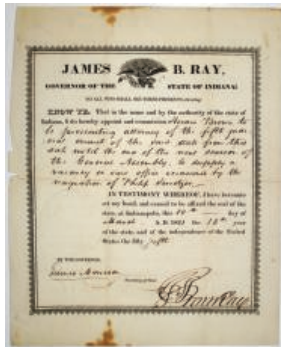 JAMES B. RAY,
GOVERNOR OF THE STATE OF INDIANA:
TO ALL WHO SHALL SEE THESE PRESENTS, Greeting:
KNOW YE, That in the name and by the authority of the state of
Indiana, I do hereby appoint and commission Hiram Brown to
be prosecuting attorney of the fifth judi
cial circuit of the said state from this
date until the end of the next session of
the General Assembly, to supply a
vacancy in said office occasioned by the
resignation of Philip
IN TESTIMONY WHEREOF, I have hereunto
set my hand, and caused to be affixed the seal of the
state, at Indianapolis, this day of
A. D. 18 the year
of the state, and of the independence of the United
States the fifty fifth
BY THE GOVERNOR,
James Morrison
J. B. Ray